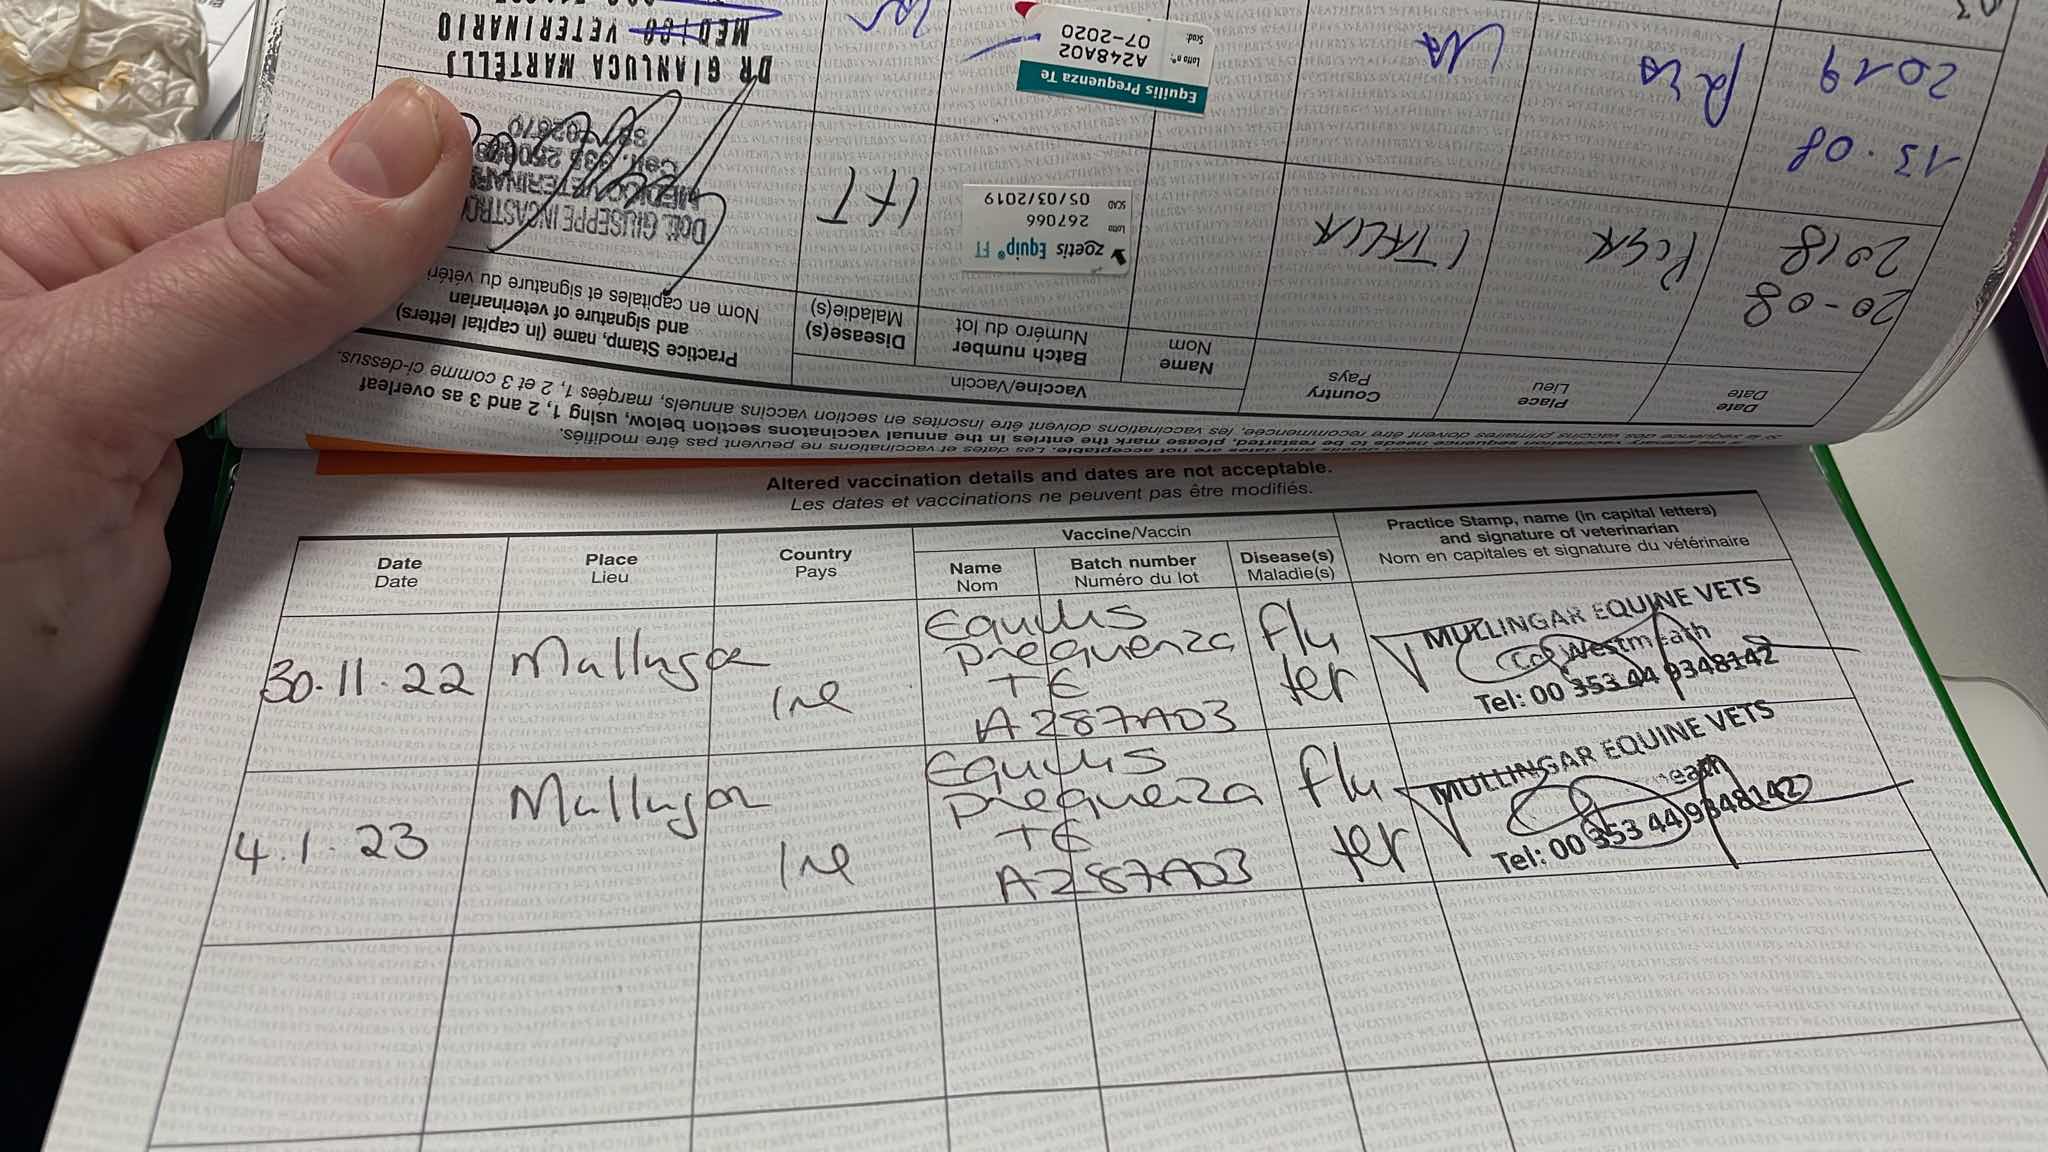 Altered vaccination details and dates are not acceptable.
Les dates et vaccinations ne peuvent pas être modifiés.
Date
Date
Place
Lieu
Country
Pays
Vaccine/Vaccin
Name
Nom
Batch number
Numéro du lot
Disease(s)
Maladie(s)
Practice Stamp, name (in capital letters)
and signature of veterinarian
Nom en capitales et signature du vétérinaire
30.11.22
Ire
Prequenza
TE
A287A03
Flu
ter
MULLINGAR EQUINE VETS
Co Westmeath
Tel: 00 353 44 9348142
4.1.23
Ire
Prequenza
TE
A287A03
Flu
ter
MULLINGAR EQUINE VETS
Tel: 00 353 44 9348142
sequence needs to be restarted, please mark the entries in the annual vaccinatons section below, using 1, 2 and 3 as overleaf
doivent être recommencée, les vaccinations doivent être inscrites en section vaccins annuels, marqées 1, 2 et 3 comme ci-dessus.
Date
Date
Place
Lieu
Country
Pays
Vaccine/Vaccin
Name
Nom
Batch number
Numéro du lot
Disease(s)
Maladie(s)
Practice Stamp, name (in capital letters)
and signature of veterinarian
Nom en capitales et signature du vétéri
20-08
2018
zoetis Equip® FT
Lotto 267066
SCAD 05/03/2019
Dott. GIUSEPPE INCASTRO
13.08
2019
Equilis Prequenza Te
Lotto n°: A248A02
Scad: 07-2020
DR GIANLUCA MARTELLI
MEDICO VETERINARIO